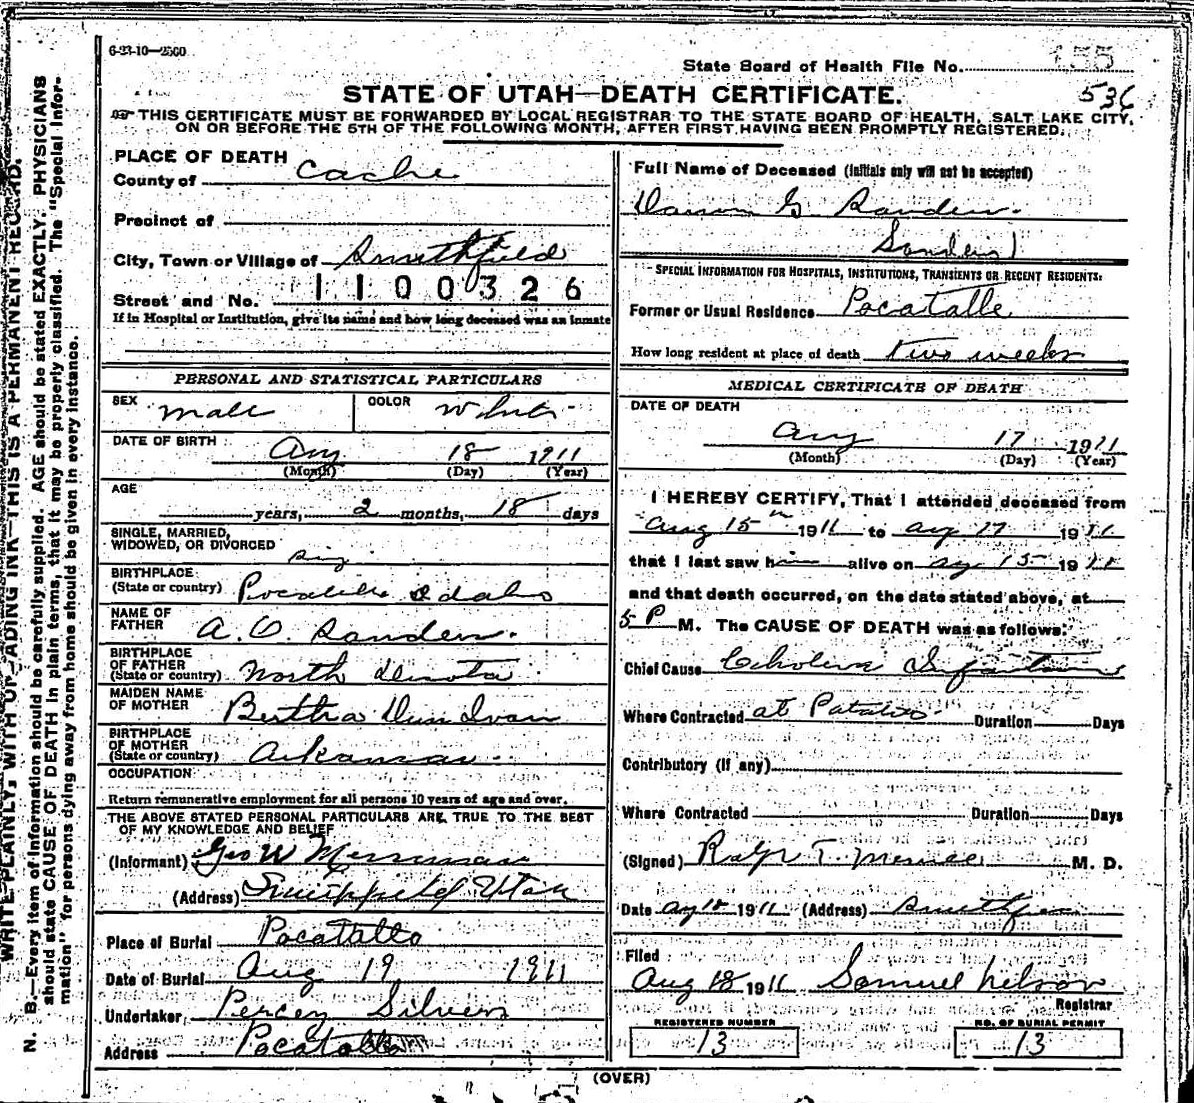 6-23-10—2500
State Board of Health File No. 155
536
STATE OF UTAH—DEATH CERTIFICATE.
THIS CERTIFICATE MUST BE FORWARDED BY LOCAL REGISTRAR TO THE STATE BOARD OF HEALTH, SALT LAKE CITY,
ON OR BEFORE THE 5TH OF THE FOLLOWING MONTH, AFTER FIRST HAVING BEEN PROMPTLY REGISTERED.
PLACE OF DEATH
County of Cache
Precinct of
City, Town or Village of Smithfield
Street and No. 1100326
If in Hospital or Institution, give its name and how long deceased was an inmate
PERSONAL AND STATISTICAL PARTICULARS
SEX male COLOR White
DATE OF BIRTH
Aug 18 1911
(Month) (Day) (Year)
AGE
years, 2 months, 18 days
SINGLE, MARRIED,
WIDOWED, OR DIVORCED sing
BIRTHPLACE
(State or country) Pocatello Idaho
NAME OF
FATHER A. O. Sanders.
BIRTHPLACE
OF FATHER
(State or country) North
MAIDEN NAME
OF MOTHER Bertha
BIRTHPLACE
OF MOTHER
(State or country) Arkansas.
OCCUPATION
Return remunerative employment for all persons 10 years of age and over.
THE ABOVE STATED PERSONAL PARTICULARS ARE TRUE TO THE BEST
OF MY KNOWLEDGE AND BELIEF
(Informant) Geo W Merriman
(Address) Smithfield Utah
Place of Burial Pocatallo
Date of Burial Aug 19 1911
Undertaker Percey Silvers
Address Pocatallo
Full Name of Deceased (Initials only will not be accepted)
G Sanders.
SPECIAL INFORMATION FOR HOSPITALS, INSTITUTIONS, TRANSIENTS OR RECENT RESIDENTS:
Former or Usual Residence Pocatalle
How long resident at place of death two weeks
MEDICAL CERTIFICATE OF DEATH
DATE OF DEATH
Aug 17 1911
(Month) (Day) (Year)
I HEREBY CERTIFY, That I attended deceased from
Aug 15th 1911 to Aug 17 1911
that I last saw him alive on Aug 15 1911
and that death occurred, on the date stated above, at
5 P M. The CAUSE OF DEATH was as follows:
Chief Cause Cholera Infantum
Where Contracted at Duration Days
Contributory (if any)
Where Contracted Duration Days
(Signed) Ralph T. M. D.
Date Aug 18 1911 (Address) Smithfield
Filed
Aug 18 1911 Samuel Nelson
Registrar
REGISTERED NUMBER
13
NO. OF BURIAL PERMIT
13
(OVER)
WRITE PLAINLY, WITH UNFADING INK—THIS IS A PERMANENT RECORD.
N. B.—Every item of information should be carefully supplied. AGE should be stated EXACTLY. PHYSICIANS
should state CAUSE OF DEATH in plain terms, that it may be properly classified. The "Special Infor-
mation" for persons dying away from home should be given in every instance.